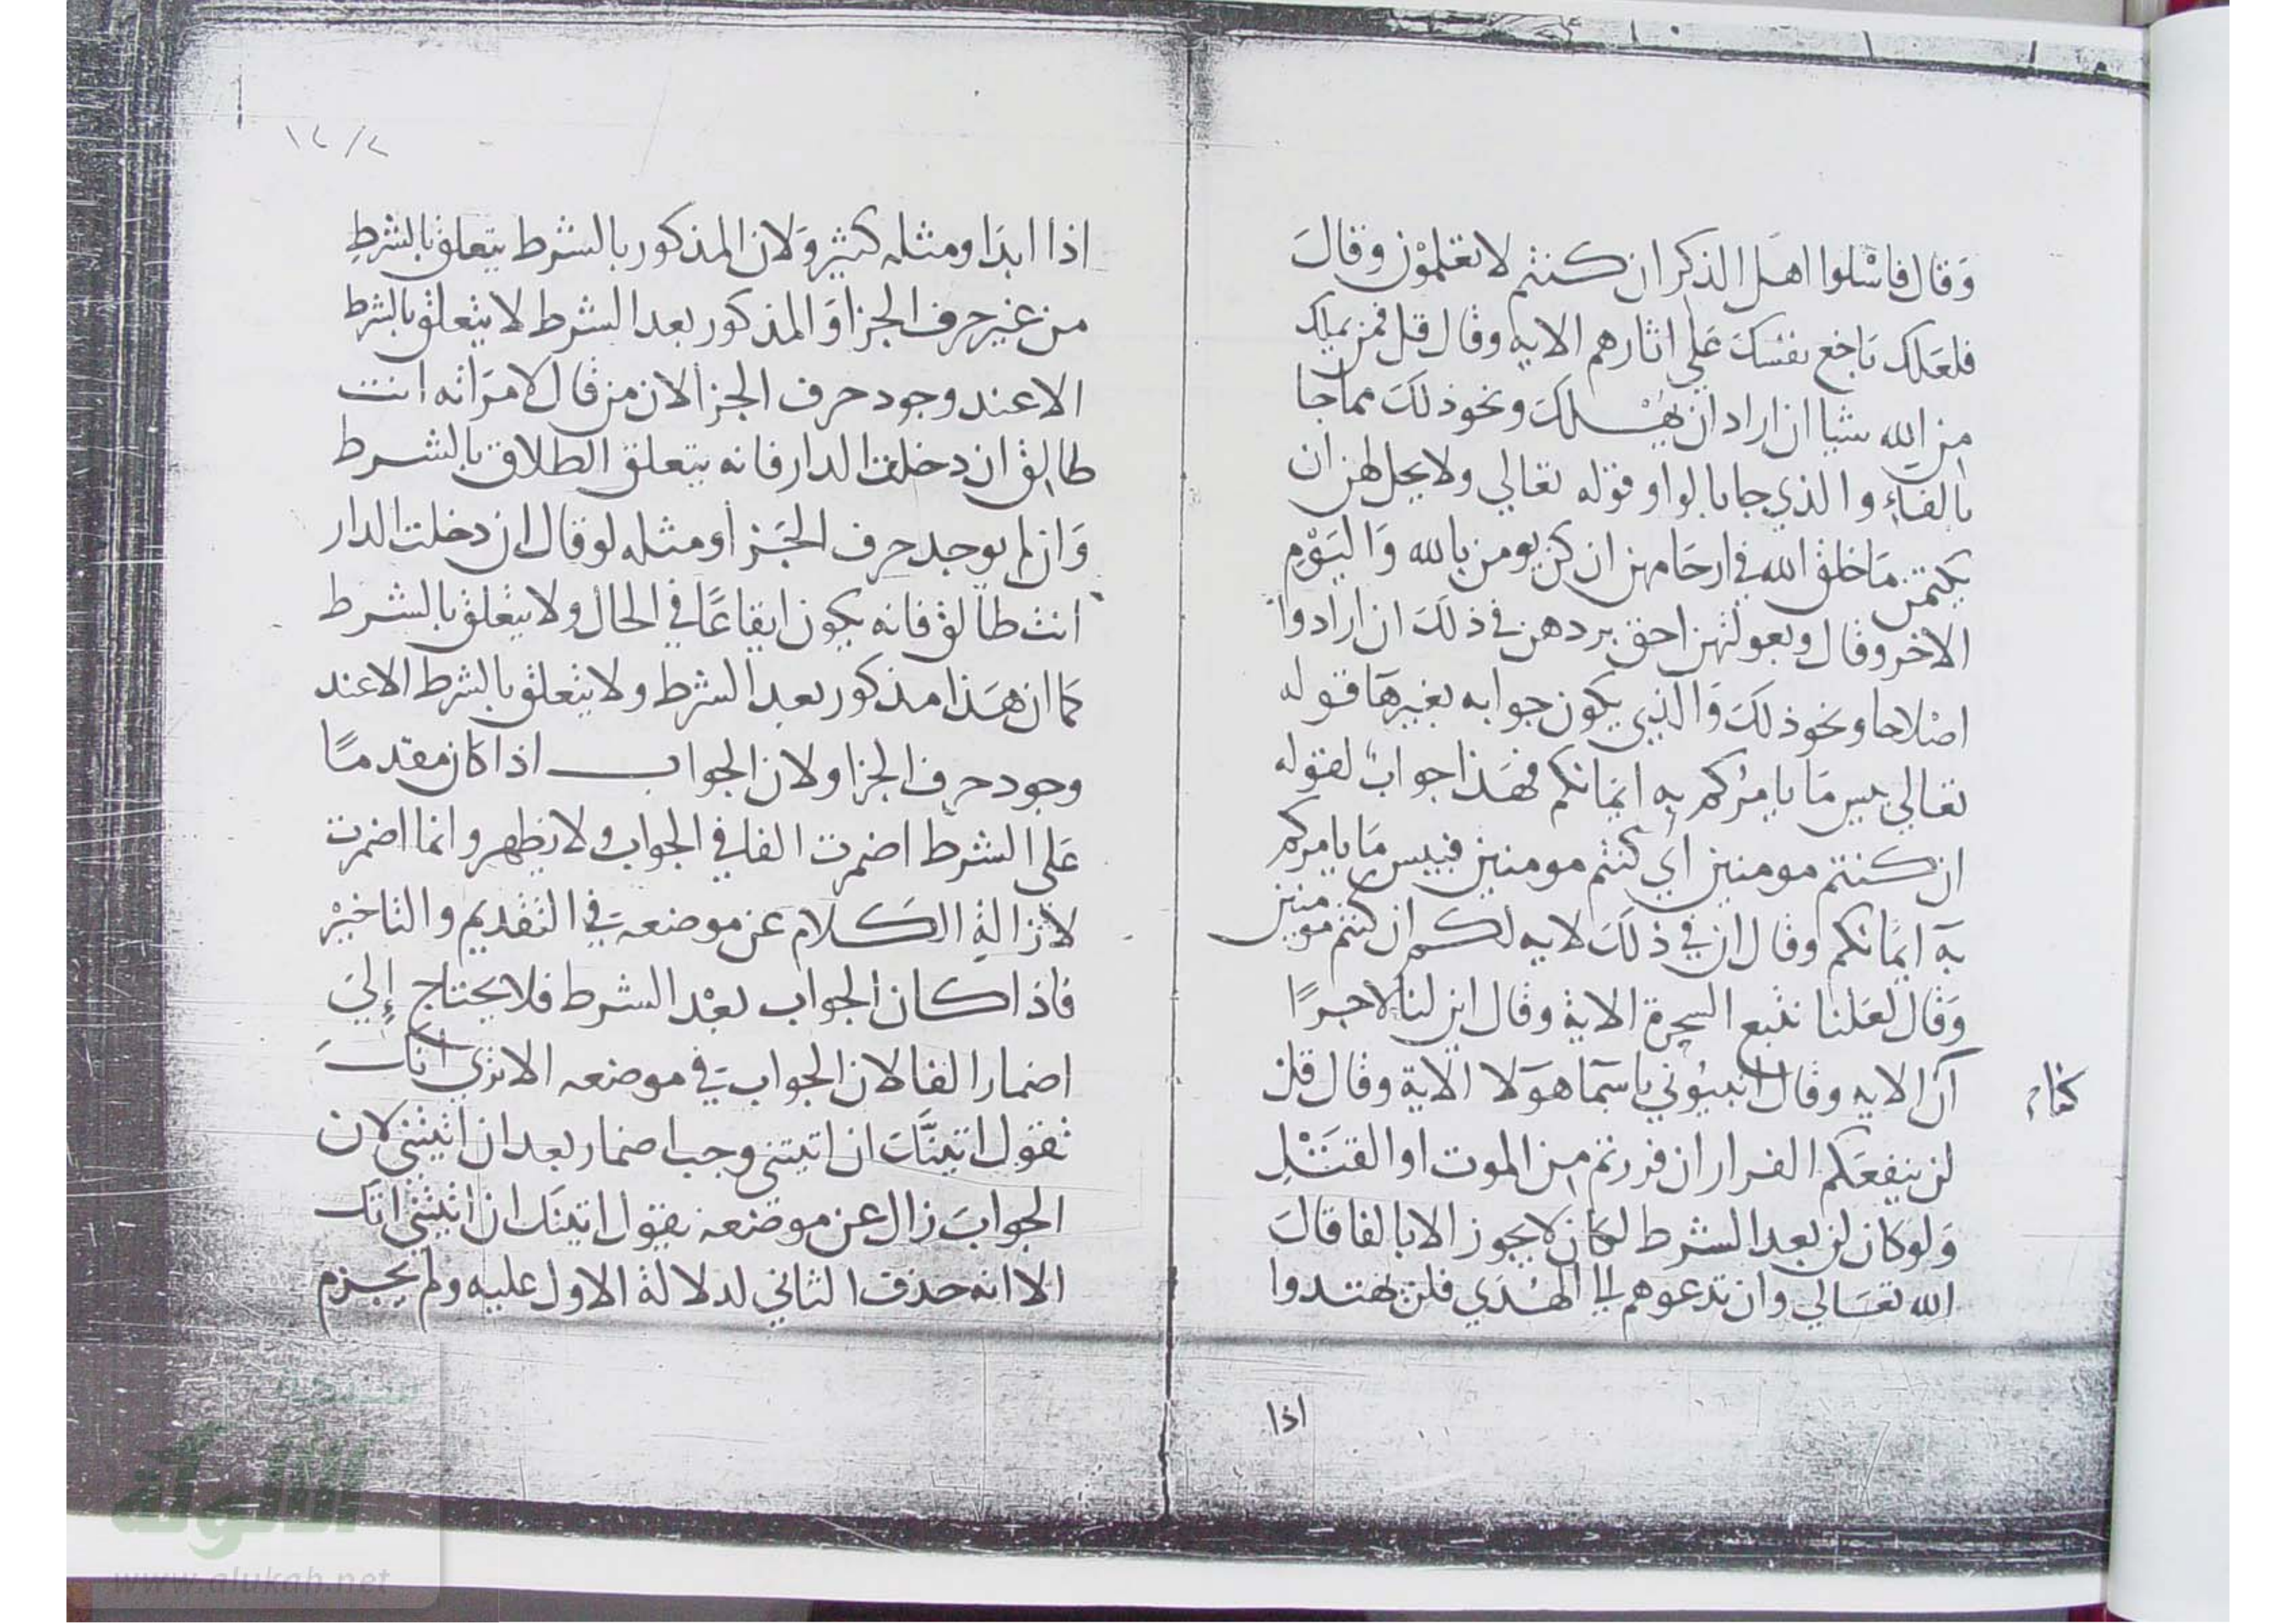 وَقال فاسْلوا اهَل الذكر ان كنتم لا تعلمْون وقالَ
فلعَلك باخع نفسَك عَلى اثارهم الايه وقال قل فمن يملك
من الله شيا ان اراد ان يهْلكَ ونحو ذلكَ مما جا
بالفاءِ والذي جا بالواو قوْله تعالي ولا يحل لهن ان
يكتمن مَا خلق الله في ارحَامهن ان كن يومن بالله وَاليَوْمِ
الاخر وقال وبعولتهن احق بردهن في ذلكَ ان ارادوا
اصْلاحا ونحو ذلكَ وَالذِي يكون جوابه بغيرهَا قوله
تعالي بيس مَا يامرُكم بِه ايمَانكم فهَذا جوابٌ لقوله
ان كنتم مومنين اي كنتم مومنين فبيس مَا يامركم
به ايمَانكم وقال ان في ذلكَ لايه لكم ان كنتم مومنين
وَقال لعَلنا نتبع السحرة الاية وقال اين لنا لاجرًا
ان الايه وقال انبيوني باسمَا هوَلا الاية وقال قل
لن ينفعَكم الفرار ان فررتم من الموت او القتْلِ
وَلو كان لن بعد الشرط لكان لا يجوز الا بالفا قالَ
الله تعَالي وان تدعوهم الي الهُدَي فلن يهتدوا
اذا
١٢/٢
اذا ابدَا ومثله كثير وَلان المذكور بالشرط يتعلق بالشرطِ
من غير حرف الجزا وَالمذكور بعد الشرط لا يتعلق بالشرط
الا عند وجود حرف الجزا لان من قال لامرَاته انت
طالِق ان دخلت الدار فانه يتعلق الطلاق بالشرط
وَان لم يوجد حرف الجَزا ومثله لو قال ان دخلت الدار
انت طالق فانه يكون ايقاعًا في الحال ولا يتعلق بالشرط
كما ان هَذا مذكور بعد الشرط ولا يتعلق بالشرط الا عند
وجود حرف الجزا ولان الجواب اذا كان مقدمًا
عَلى الشرط اضمرت الفا في الجواب ولا تظهر وانما اضمرت
لازالةِ الكَلام عن موضعه في التقديم والتاخيْر
فاذا كان الجواب بعْد الشرط فلا يحتاج إلىَ
اضمار الفا لان الجواب في موضعه الا تري انكَ
تقول اتينَّكَ ان اتيتني وجب اضمار بعد ان اتيتني لان
الجوابَ زال عن موضعه بقول اتينَك ان اتيتني اتَك
الا انه حذف الثاني لدلالة الاول عليه ولم يجزم
شبكة
الألوكة
www.alukah.net